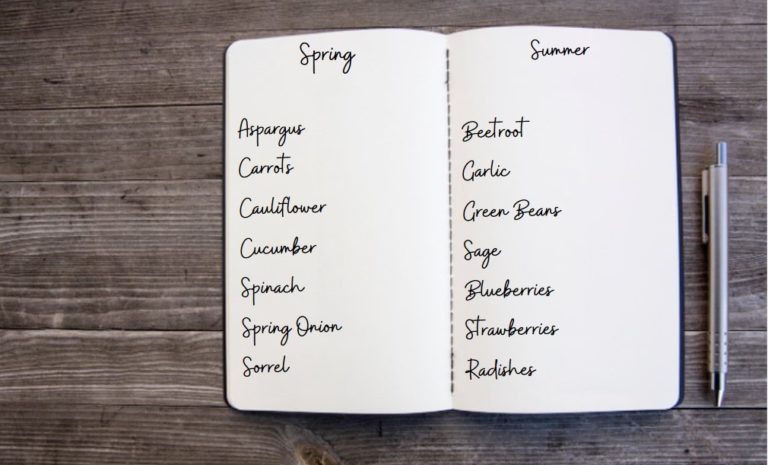 Spring
Aspargus
Carrots
Cauliflower
Cucumber
Spinach
Spring Onion
Sorrel
Summer
Beetroot
Garlic
Green Beans
Sage
Blueberries
Strawberries
Radishes